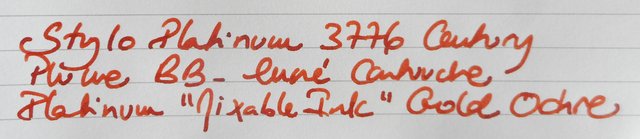 Stylo Platinum 3776 Century
Plume BB - Cartouche
Platinum "Mixable Ink" Gold Ochre